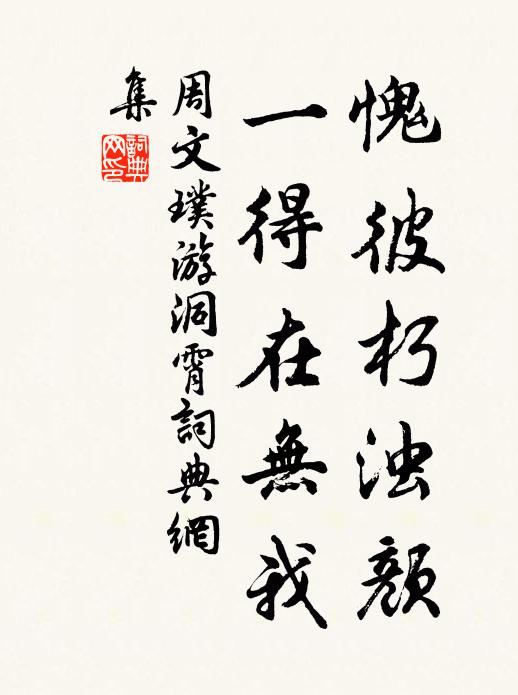 愧彼朽浊顏
一得在無我
周文璞游洞霄詞典網
集
詞典網印